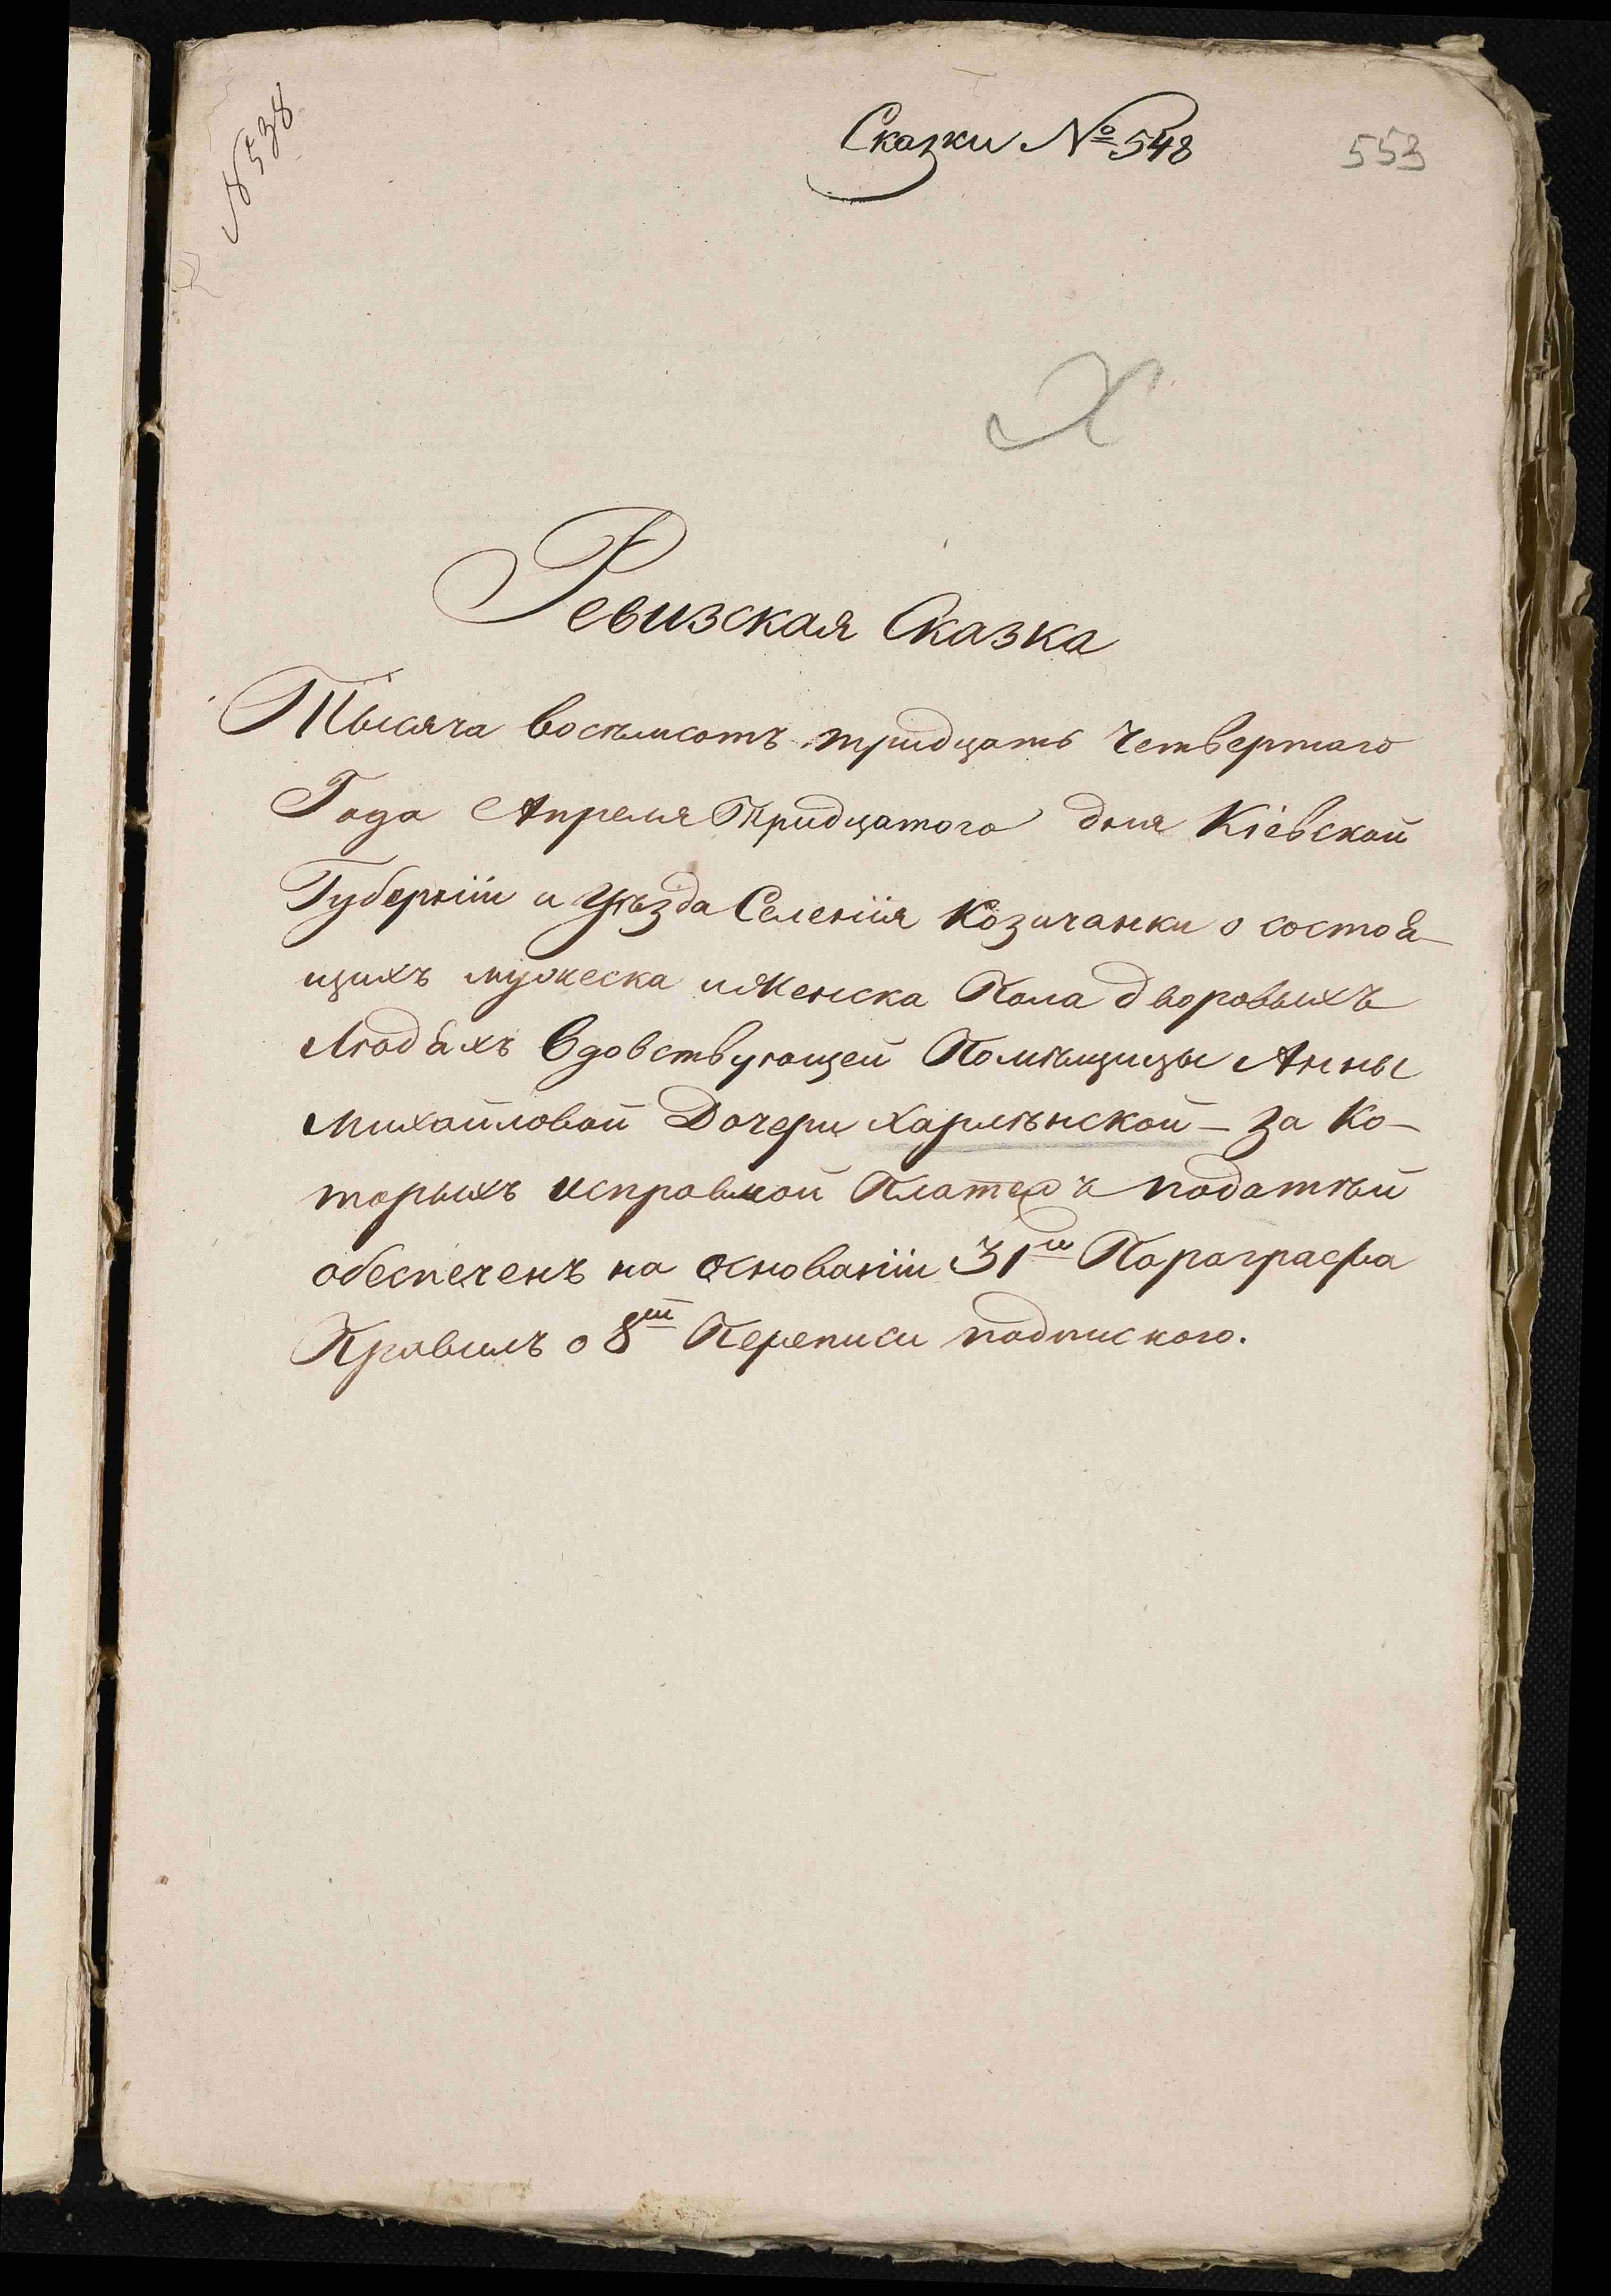 № 538
Сказки № 548
553
Ревизская Сказка
Тысяча восемьсотъ тридцать Четвертаго
Года Апреля Тридцатого дня Кіевской
Губерніи и Уѣзда Селенія Козичанки о состоя-
щихъ мужеска и Женска Пола дворовыхъ
Людяхъ Вдовствующей Помѣщицы Анны
Михайловой Дочери Харлѣнской - за Ко-
торыхъ исправной Платежъ податѣй
обеспеченъ на основаніи 31го Параграфа
Правилъ о 8й Переписи подпискою.